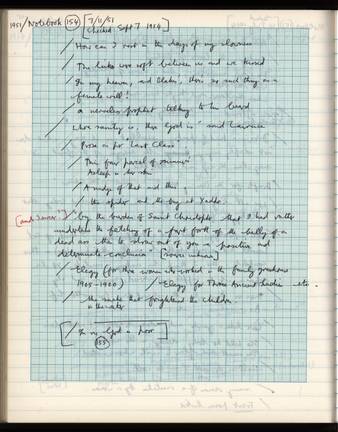 1951/Notebook (154) [3/11/51
Checked Sept 7 1954]
/ How can I rest in the days of my slowness
/ The lake was soft between us and we kissed
/ In my heaven, said Blake, there's no such thing as a
female will!
/ a nerveless prophet talking to his beard
/ where sanity is, there God is" said Lawrence
/ Prose is for "Last Class"
/ This fair parcel of summer
Asleep in her skin
/ A nudge of that and this;
/ the spider and the bug at Yaddo
[and Saner?] / "by the burden of Saint Christopher, that I had rather
undertake the fetching of a fart forth of the belly of a
dead ass than to draw out of you a positive and
determinate conclusion
/ Elegy (for three women who worked in the family greenhouse
1905-1920) / "Elegy for Three Ancient Ladies etc.
/ the snake that frightened the children
in the water
[/ In my God is poor]
(153)